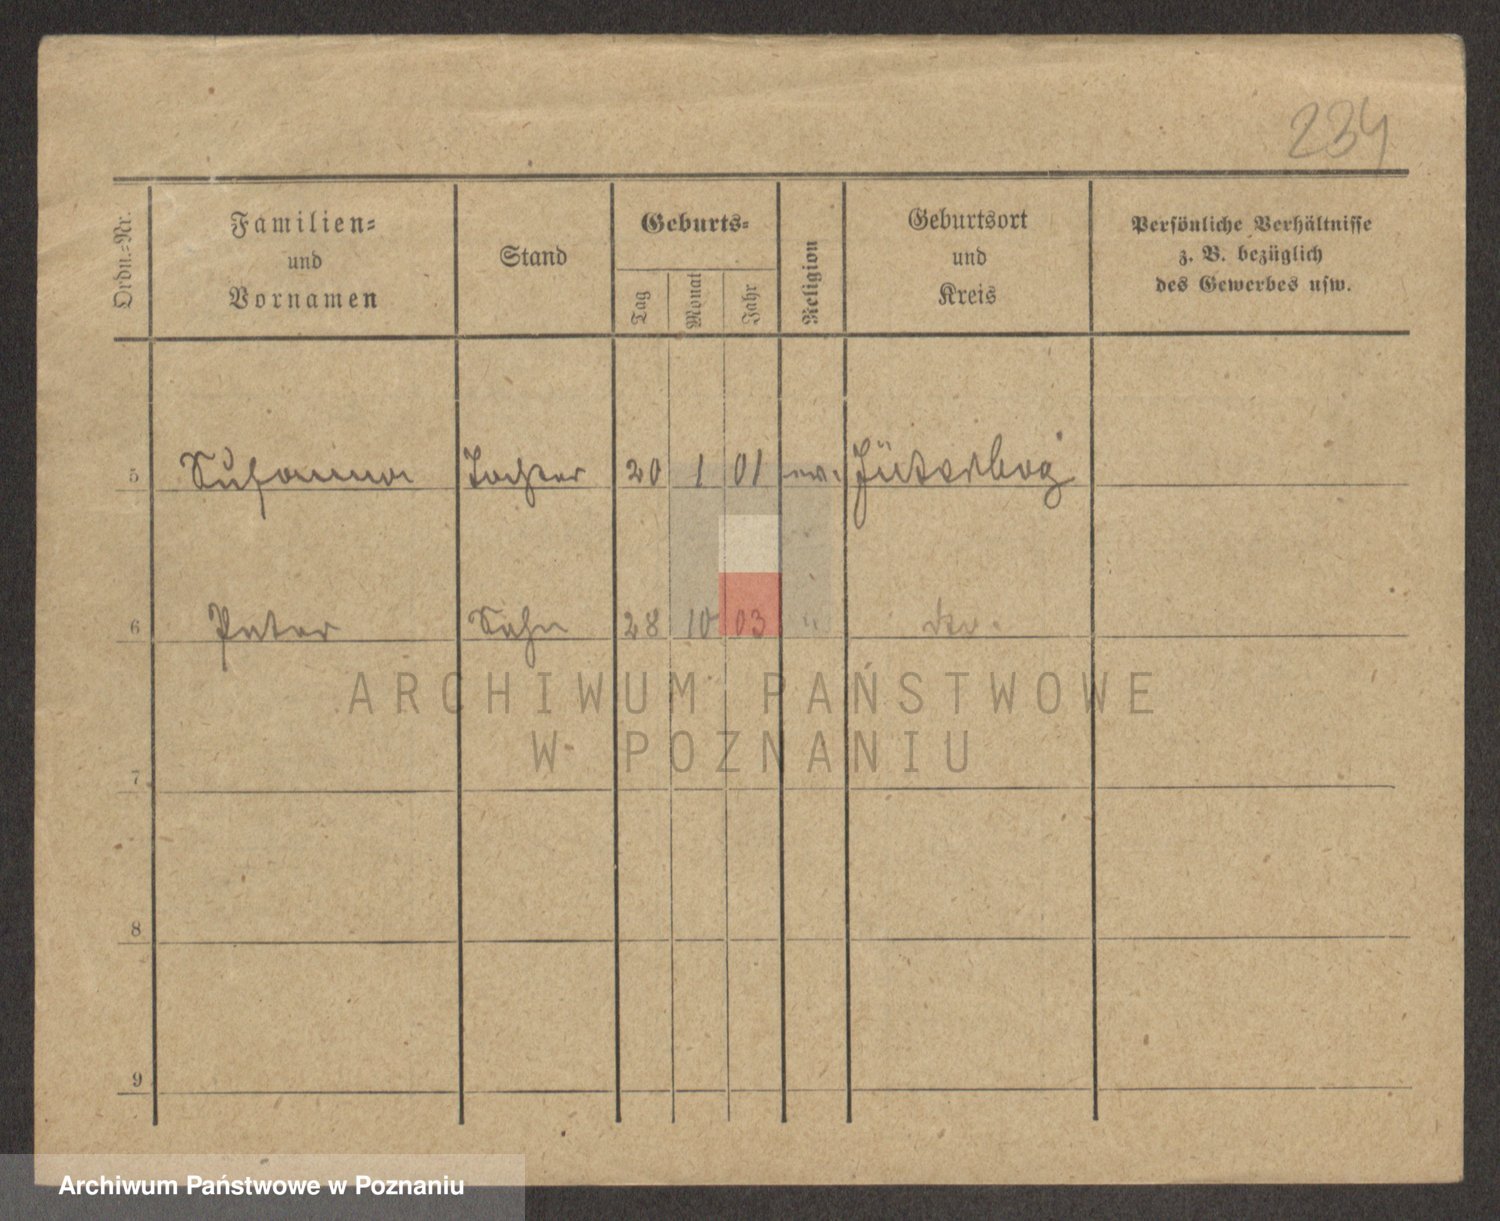 234
Ordn.-Nr.
Familien-
und
Vornamen
Stand
Geburts-
Tag
Monat
Jahr
Religion
Geburtsort
und
Kreis
Persönliche Verhältnisse
z. B. bezüglich
des Gewerbes usw.
5 Susanna Tochter 20 1 01 ev. Jüterbog
6 Peter Sohn 28 10 03 " dto.
ARCHIWUM PAŃSTWOWE
W POZNANIU
7
8
9
Archiwum Państwowe w Poznaniu